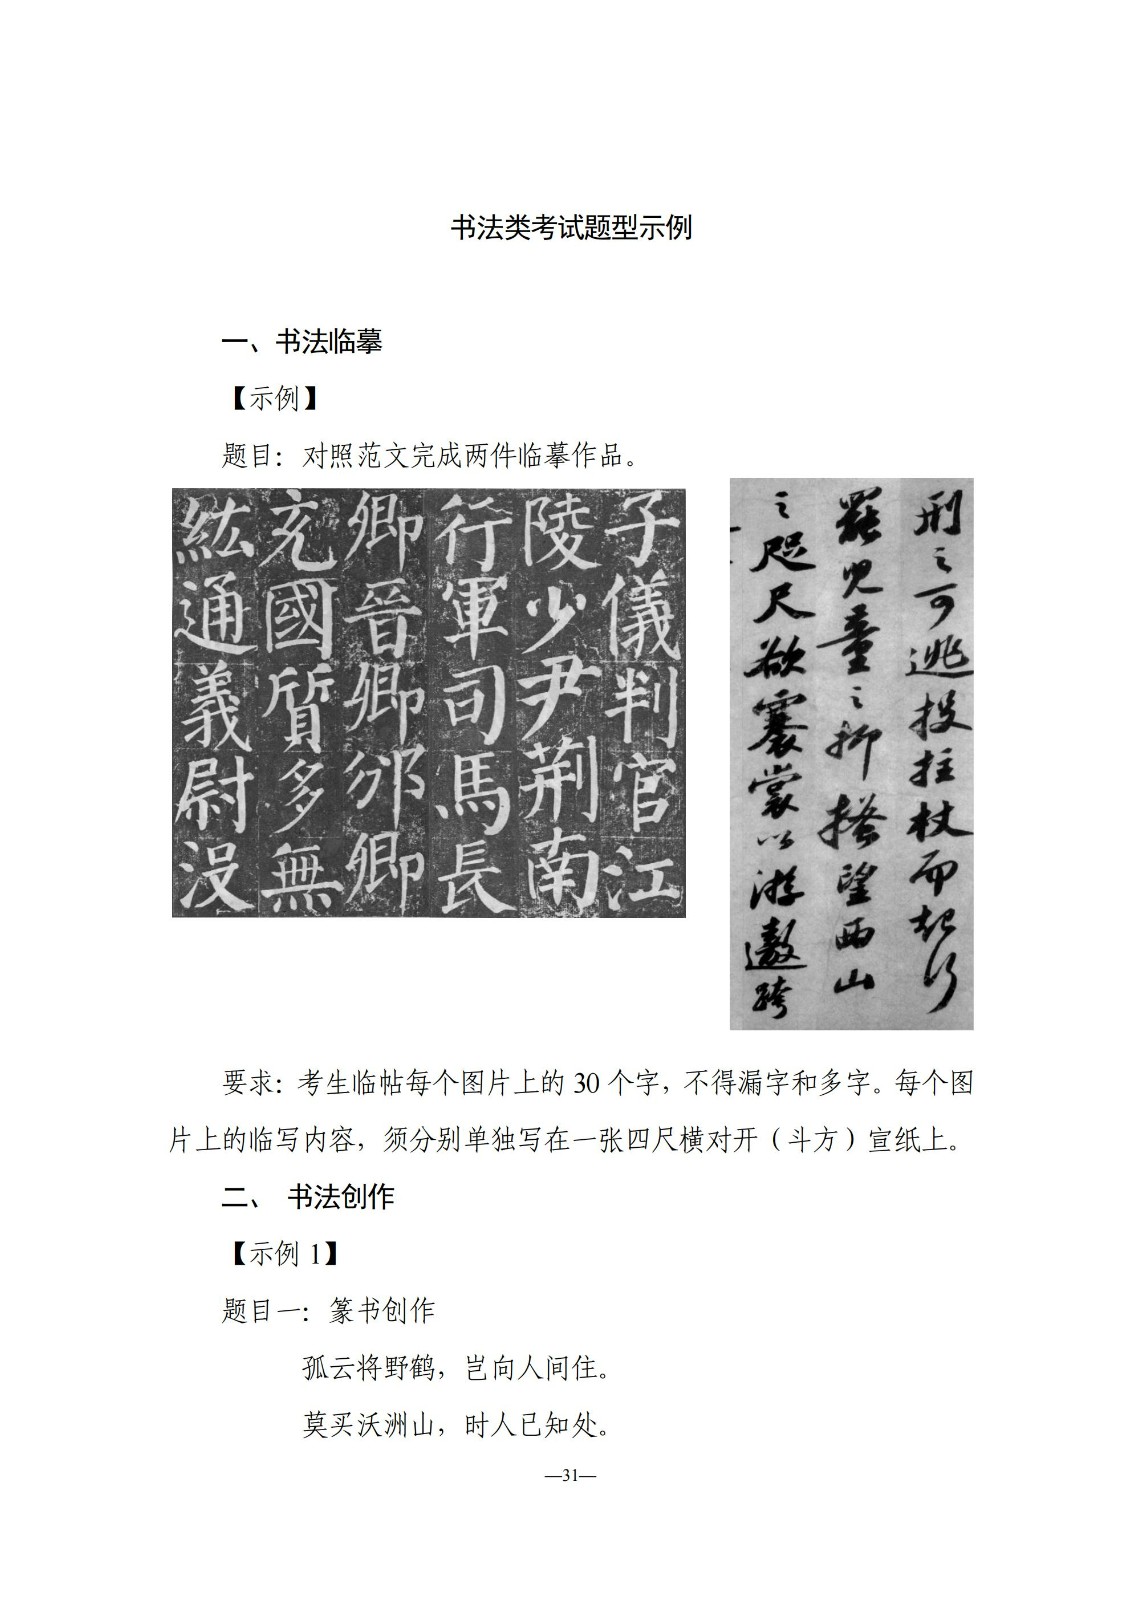 书法类考试题型示例
一、书法临摹
【示例】
题目：对照范文完成两件临摹作品。
子儀判官江
陵少尹荆南
行軍司馬長
卿晉卿邠卿
充國質多無
紘通義尉没
刑之可逃投拄杖而起行
罷兒童之抑搔望西山
之咫尺欲褰裳以游遨跨
要求：考生临帖每个图片上的 30 个字，不得漏字和多字。每个图
片上的临写内容，须分别单独写在一张四尺横对开（斗方）宣纸上。
二、 书法创作
【示例 1】
题目一：篆书创作
孤云将野鹤，岂向人间住。
莫买沃洲山，时人已知处。
—31—